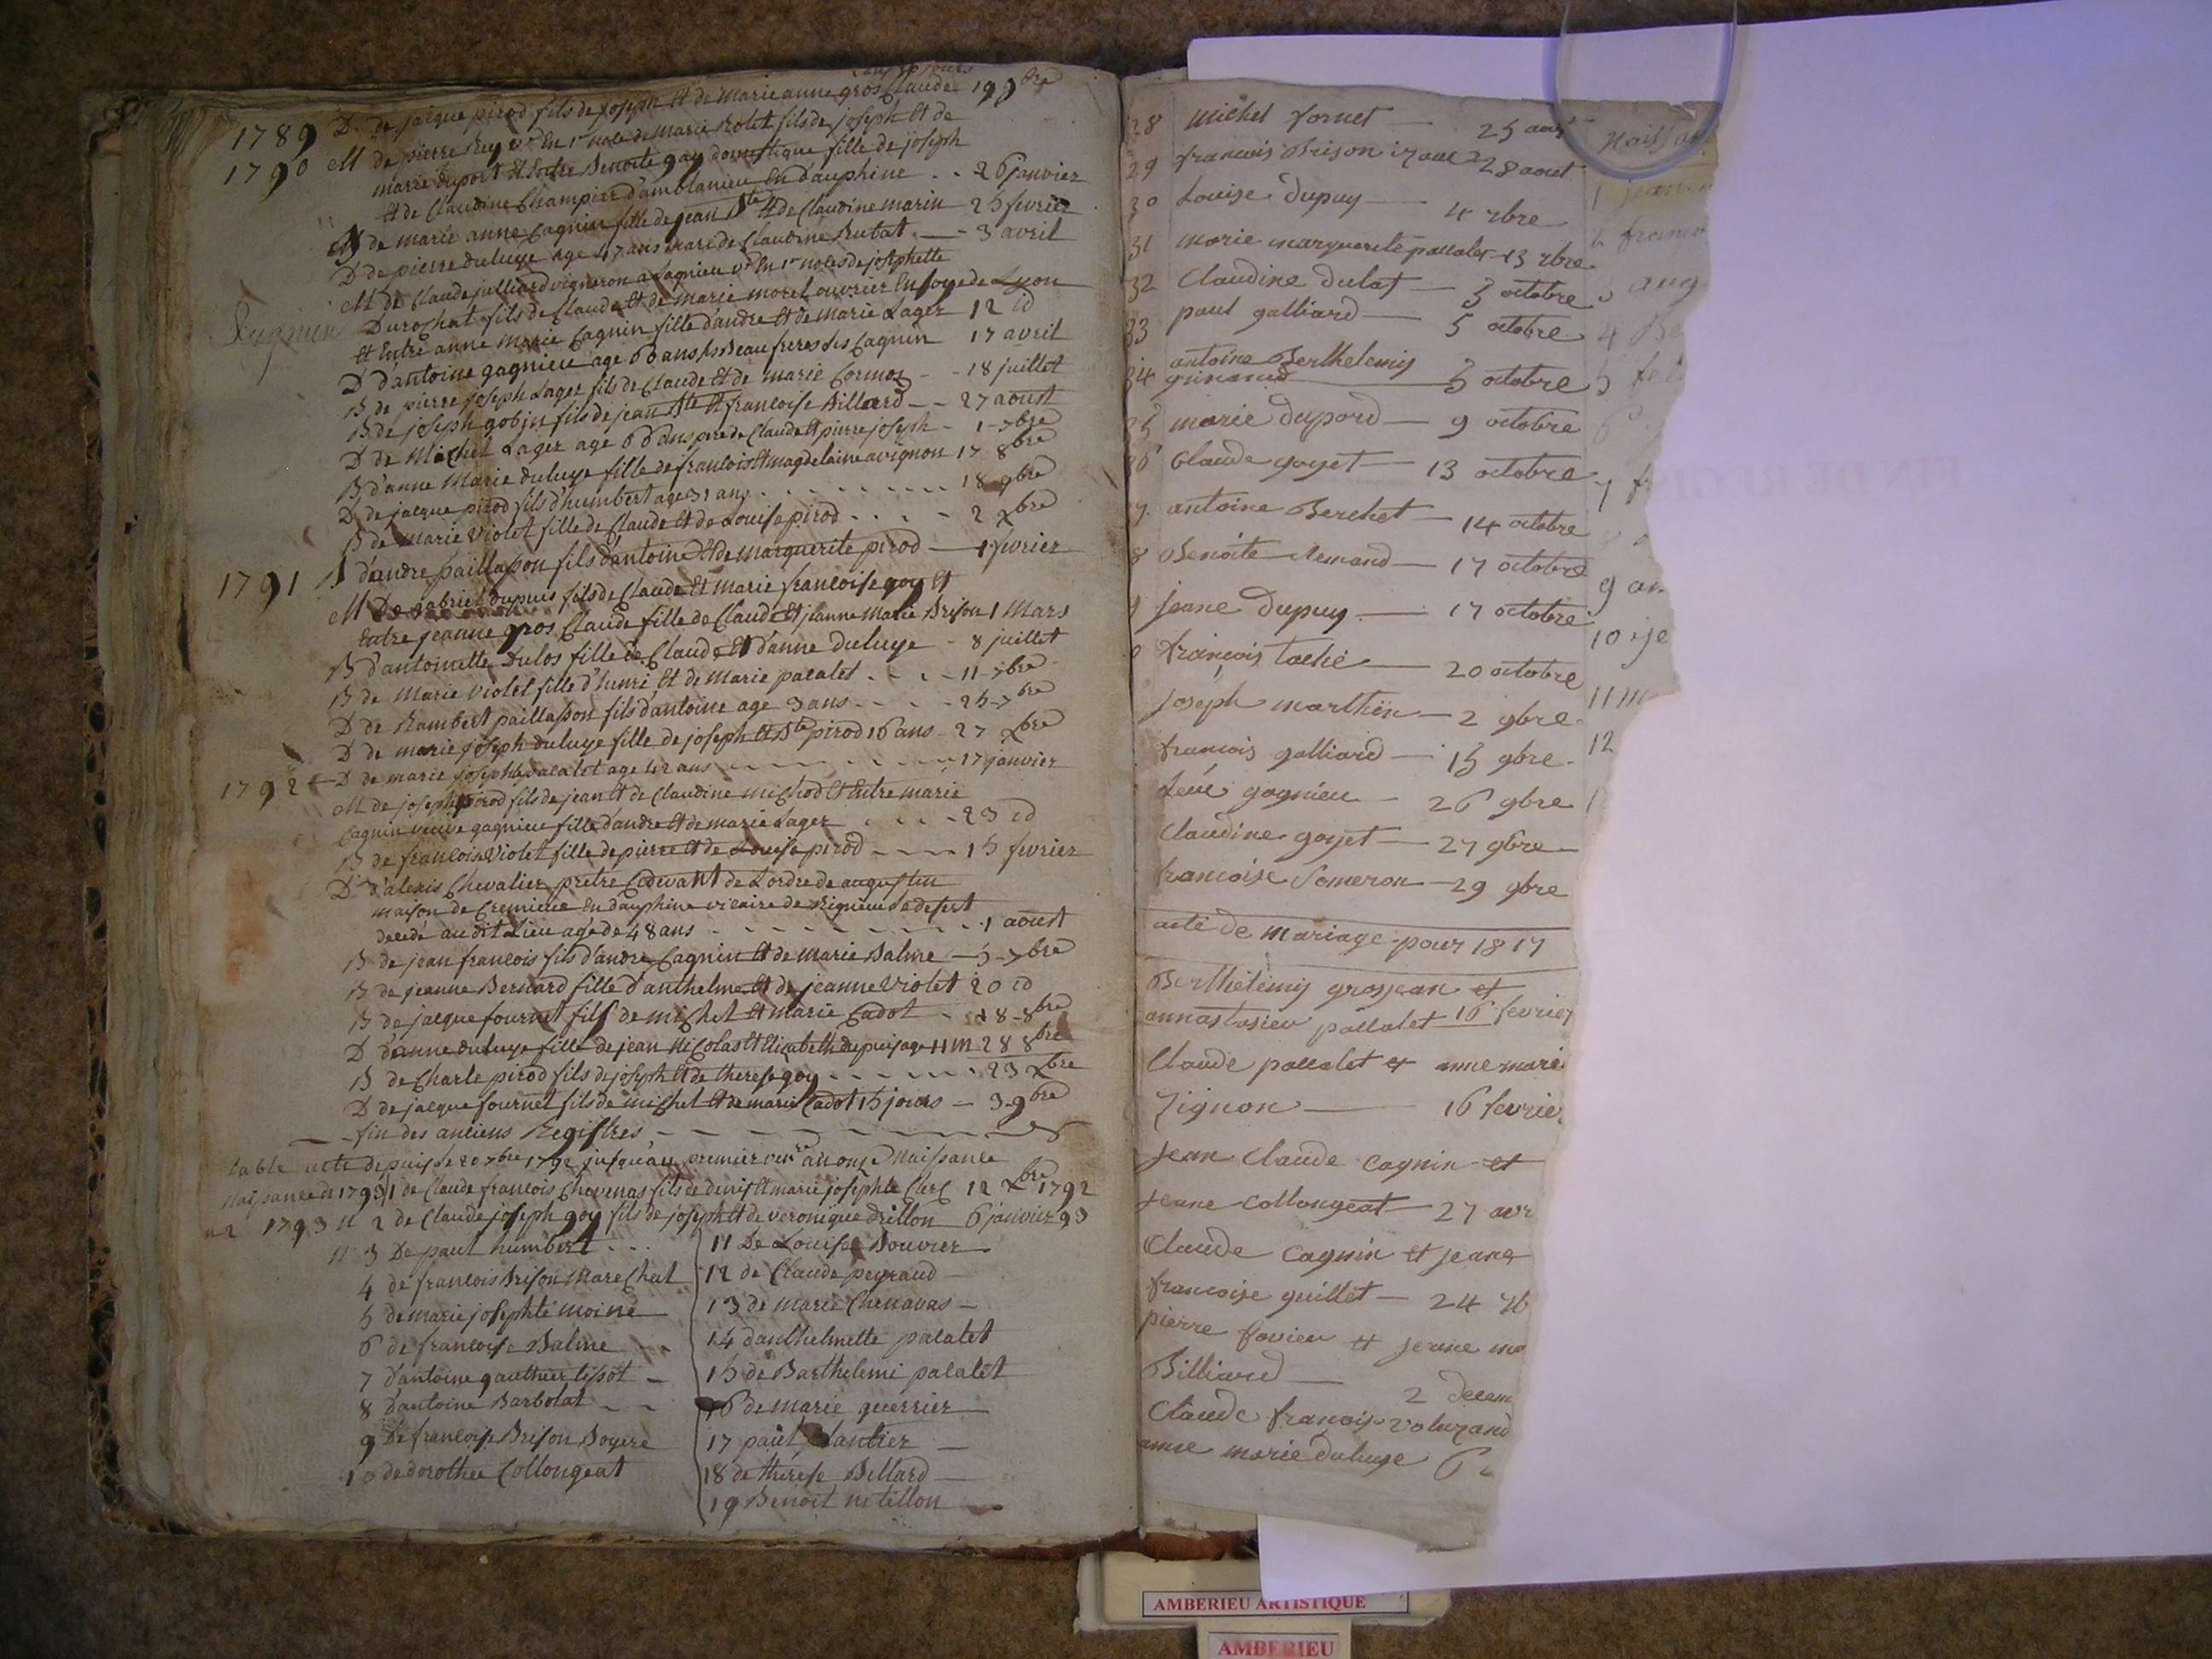 1789 D. de jacque pirod fils de joseph et de Marie anne gros Claude 19 9bre
1790 M de pierre Rey vf En 1re noce de Marie Rolet fils de joseph Et de
marie duport Et Entre Benoite goy domestique fille de joseph
Et de Claudine Champier d'amblanieu En dauphine . . 26 janvier
de marie anne Cagnin fille de jean Bte Et de Claudine marin - 25 fevrier
D de pierre duluye age 47 ans mari de Claudine Rubat. — - 3 avril
M de Claude julliard vigneron a Lagnieu vf En 1re noces de josephette
Durochat fils de Claude Et de marie morel ouvrier En soye de Lyon
Et Entre anne Marie Cagnin fille d'andre Et de Marie Lager 12 id
D d'antoine gagnieu age 60 ans beau freres des Cagnin 17 avril
B de pierre joseph Lager fils de Claude Et de marie Cormoz - - 18 juillet
B de joseph gobjn fils de jean Bte Et francoise Billard - - 27 aoust
D de Michel Lager age 66 ans pere de Claude Et pierre joseph - 1-7bre
B d'anne Marie duluye fille de francois Et magdelaine avignon 17 8bre
D de jacque pirod fils d'humbert age 31 ans . . . . 18-9bre
B de marie Violet fille de Claude Et de Louise pirod . . . - 2 xbre
1791 d'andre paillasson fils d'antoine Et de marguerite pirod — 1 fevrier
M De gabriel dupuis fils de Claude Et marie francoise goy Et
Entre jeanne gros Claude fille de Claude Et jeanne Marie Brison 1 Mars
B d'antoinette Dulos fille de Claude Et d'anne duluye - 8 juillet
B de Marie Violet fille d'henri Et de Marie pacalet . . . - 11-7bre
D de Rambert paillasson fils d'antoine age 3 ans - - . - 25-7bre
D de marie joseph duluye fille de joseph Et Bte pirod 16 ans - 27 xbre
1792 D de marie josephte pacalet age 42 ans - - - 17 janvier
M de joseph pirod fils de jean Et de Claudine michod Et Entre marie
Cagnin veuve gagnieu fille d'andre Et de marie Lager . . . - 23 id
B de francoise Violet fille de pierre Et de Louise pirod - - - - 15 fevrier
D d'alexis Chevalier pretre Cidevant de Lordre de augustin
maison de Cremieu En dauphine vicaire de Rignieu Le desert
decede au dit Lieu age de 48 ans - - - - 1 aoust
B de jean francois fils d'andre Cagnin Et de Marie Balme — 5-7bre
B de jeanne Bernard fille d'anthelme Et de jeanne Violet 20 id
B de jacque fournet fils de michel Et marie Cadot - 18-8bre
D d'anne duluye fille de jean Nicolas Et Elizabeth dupuis age 11 m 28 8bre
B de Charle pirod fils de joseph Et de therese goy - - - - 23 xbre
D de jacque fournet fils de michel Et de marie Cadot 15 jours — 3-9bre
— - fin des anciens Registres - — — —
table acte depuis le 20 7bre 1792 jusqu'au premier an onze Naissance
Naissance de 1793 1 de Claude francois Chevenas fils de denis Et marie josephte Clerc 12 xbre 1792
1793 2 de Claude joseph goy fils de joseph Et de veronique drillon 6 janvier 93
3 De paul humbert . . .
4 de francois Brison Marechal
5 de marie josephte moine
6 de francoise Balme - -
7 d'antoine gauthier tissot -
8 d'antoine Barbolat - -
9 De francoise Brison Boyere
10 de dorothee Collongeat
11 De Louise Bouvier
12 de Claude peyraud
13 de marie Chenavas -
14 d'anthelmette pacalet
15 de Barthelemi pacalet
16 de marie guerrier
17 paul Plantier -
18 de therese Billard
19 Benoit
28 michel fornet — 25 aout
29 francois Brison 28 aout
30 Louise Dupuy — 4 7bre
31 marie marguerite pacalet 13 7bre
32 Claudine Dulat — 3 octobre
33 paul galliard — 5 octobre
34 antoine Berthelemy
3 octobre
35 marie Duport — 9 octobre
36 Claude goyet — 13 octobre
antoine Berchet — 14 octobre
Benoite Clemand — 17 octobre
jeane Dupuy — 17 octobre
francois tache — 20 octobre
joseph marthin — 2 9bre
francois galliard — 15 9bre
gagnieu - 26 9bre
Claudine goyet — 27 9bre
francoise Someron — 29 9bre
acte de mariage pour 1817
Berthelemy grosjean et
annastasieu pacalet 16 fevrier
Claude pacalet et anne marie
Tignon — 16 fevrier
jean Claude Cagnin et
jeane Collongeat — 27 avr
Claude Cagnin et jeane
francoise guillet — 24 7b
pierre favieu et jeane ma
Billiard — 2 decem
Claude francois
anne marie duluye 6
Naissan
1 jean
2 franco
3 aug
4 Be
9 an
10 je
11 m
12
AMBERIEU ARTISTIQUE
AMBERIEU